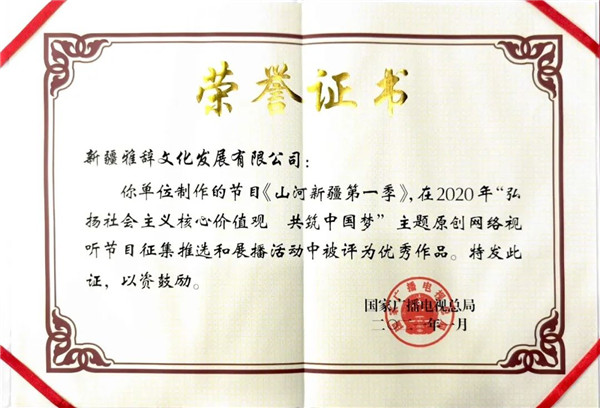 荣誉证书
新疆雅辞文化发展有限公司：
你单位制作的节目《山河新疆第一季》，在2020年“弘
扬社会主义核心价值观 共筑中国梦”主题原创网络视
听节目征集推选和展播活动中被评为优秀作品。特发此
证，以资鼓励。
国家广播电视总局
二 一年一月